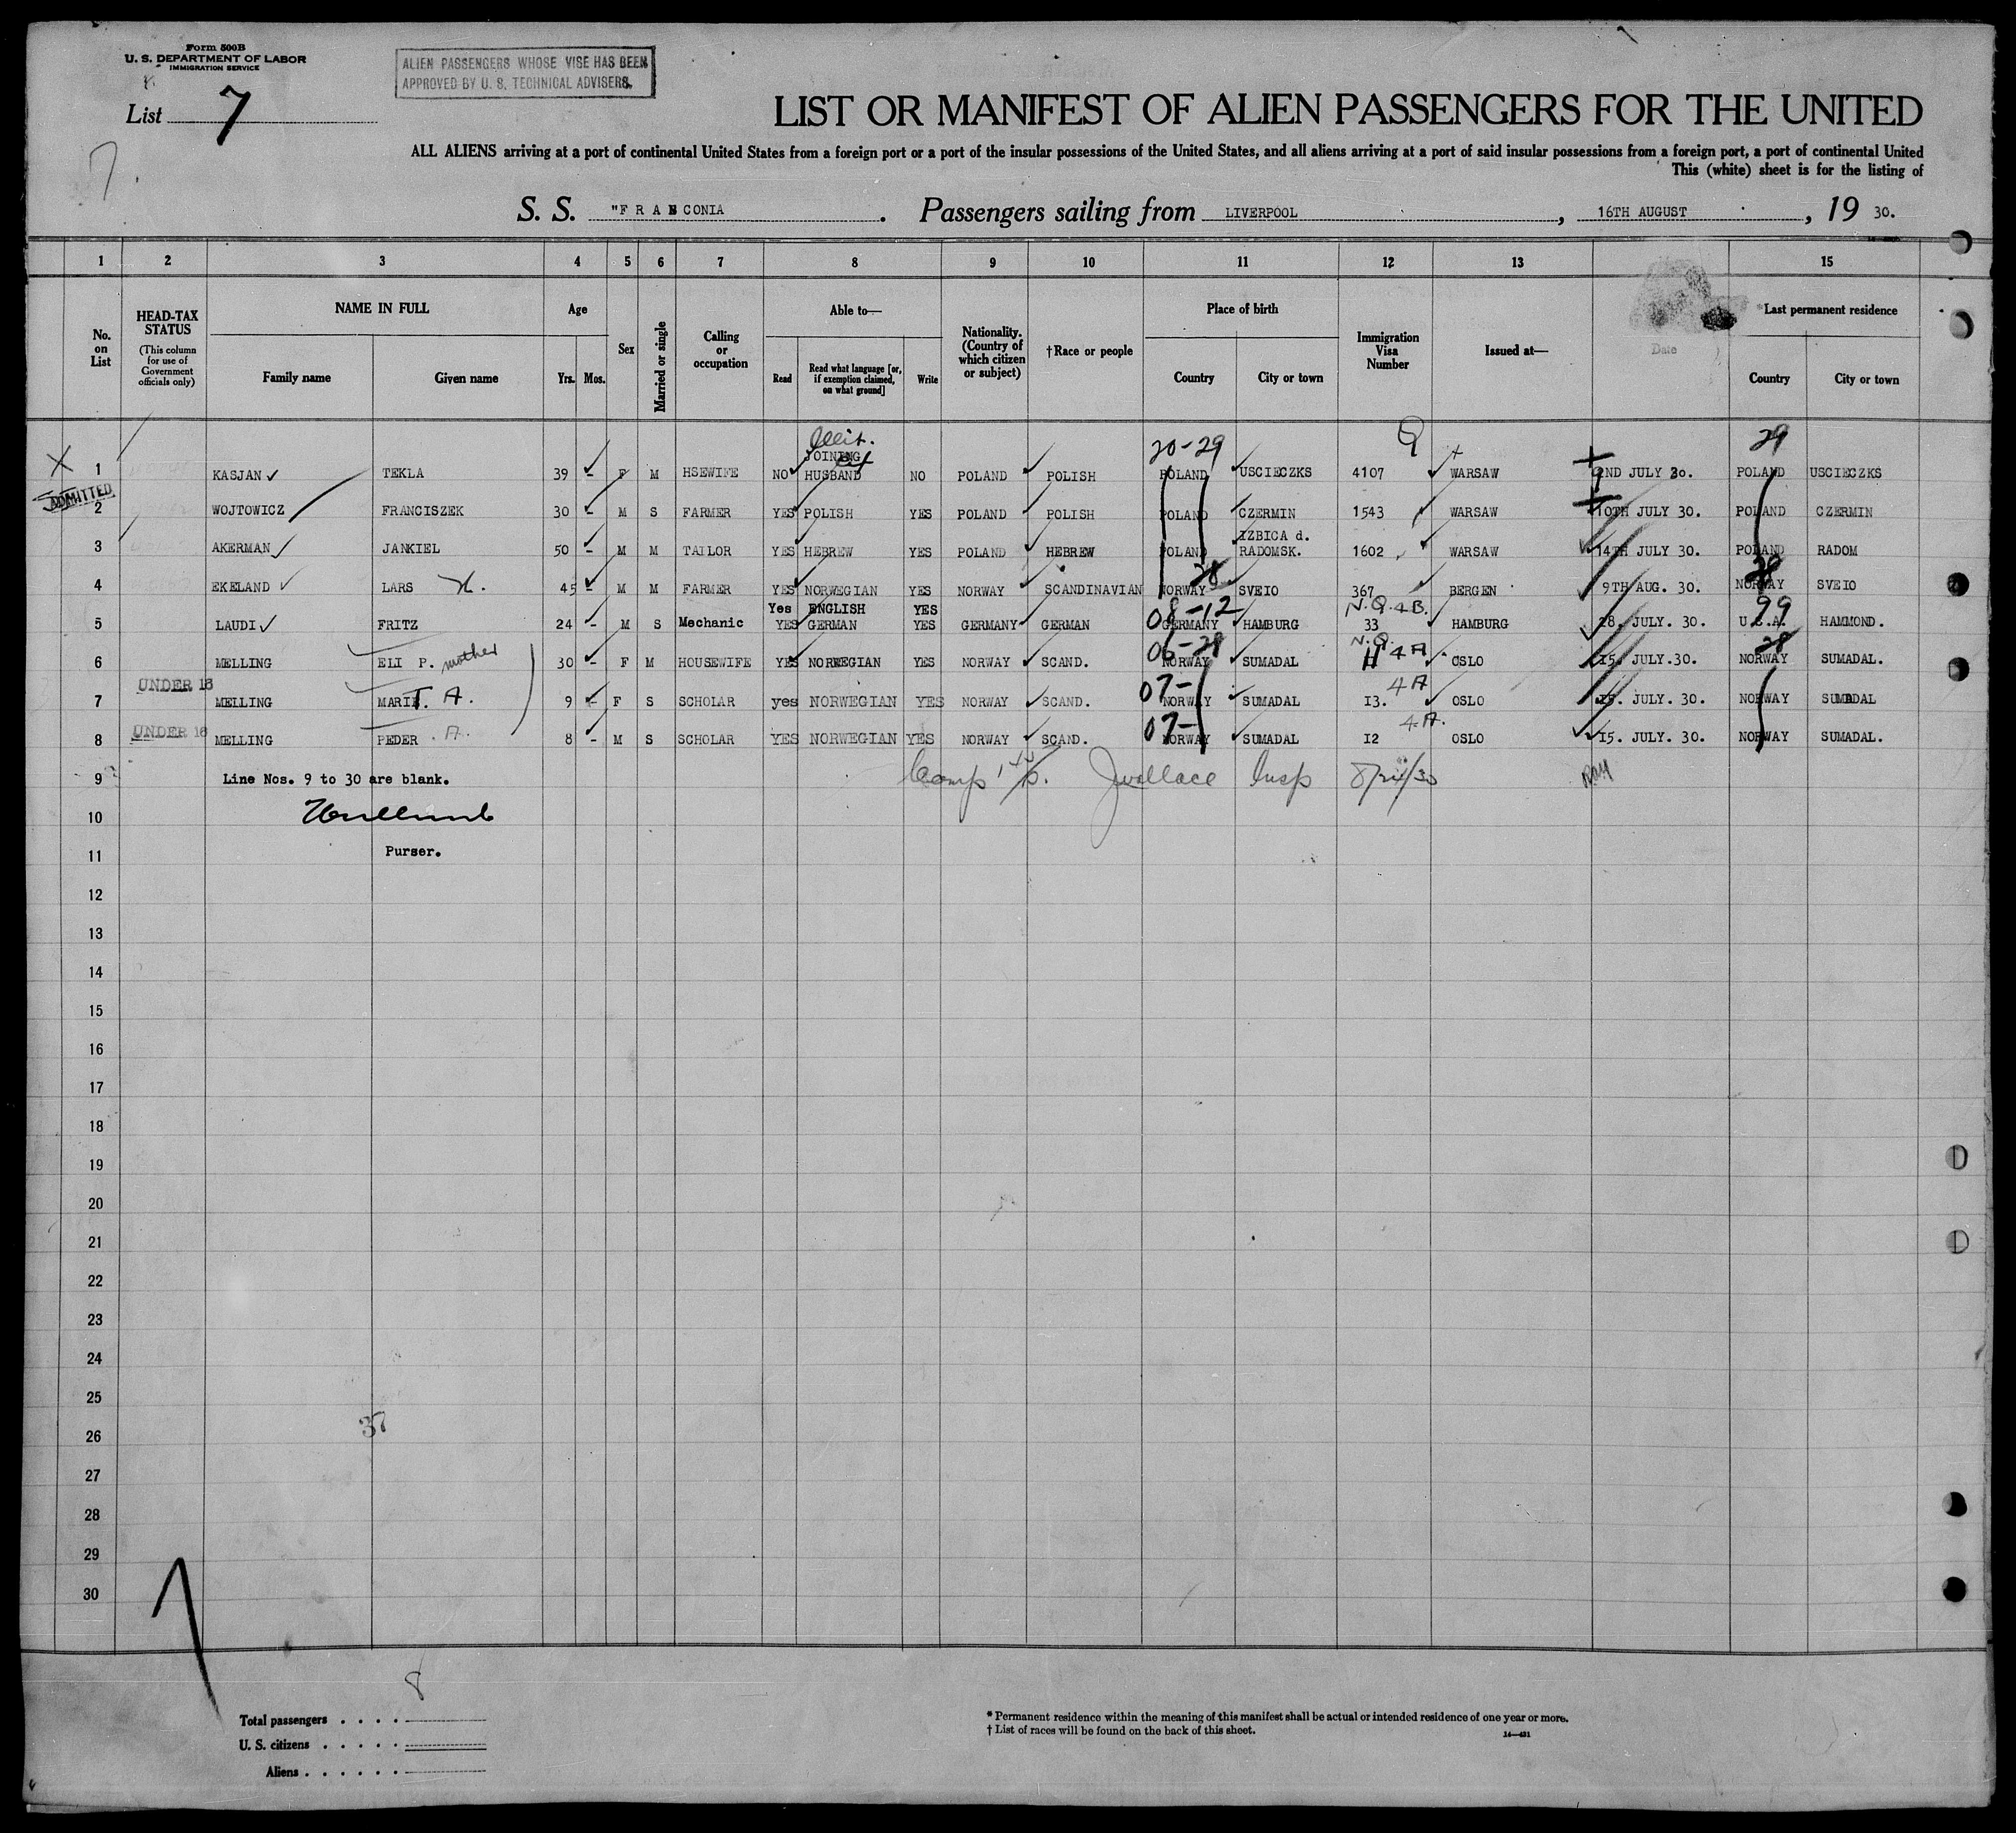 Form 500B
U. S. DEPARTMENT OF LABOR
IMMIGRATION SERVICE
ALIEN PASSENGERS WHOSE VISE HAS BEEN
APPROVED BY U. S. TECHNICAL ADVISERS.
List 7
7.
LIST OR MANIFEST OF ALIEN PASSENGERS FOR THE UNITED
ALL ALIENS arriving at a port of continental United States from a foreign port or a port of the insular possessions of the United States, and all aliens arriving at a port of said insular possessions from a foreign port, a port of continental United
This (white) sheet is for the listing of
S. S. "FRANCONIA. Passengers sailing from LIVERPOOL, 16TH AUGUST, 19 30.
1 2 3 4 5 6 7 8 9 10 11 12 13 15
No. on List
HEAD-TAX STATUS (This column for use of Government officials only)
NAME IN FULL Family name Given name
Age Yrs. Mos.
Sex
Married or single
Calling or occupation
Able to— Read Read what language [or, if exemption claimed, on what ground] Write
Nationality. (Country of which citizen or subject)
†Race or people
Place of birth Country City or town
Immigration Visa Number
Issued at—
Date
*Last permanent residence Country City or town
20-29 29
JOINING
1 KASJAN TEKLA 39 - F M HSEWIFE NO HUSBAND NO POLAND POLISH POLAND USCIECZKS 4107 WARSAW 2ND JULY 30. POLAND USCIECZKS
ADMITTED
2 WOJTOWICZ FRANCISZEK 30 - M S FARMER YES POLISH YES POLAND POLISH POLAND CZERMIN 1543 WARSAW 10TH JULY 30. POLAND CZERMIN
IZBICA d.
3 AKERMAN JANKIEL 50 - M M TAILOR YES HEBREW YES POLAND HEBREW POLAND RADOMSK. 1602 WARSAW 14TH JULY 30. POLAND RADOM
28 28
4 EKELAND LARS H. 45 - M M FARMER YES NORWEGIAN YES NORWAY SCANDINAVIAN NORWAY SVEIO 367 BERGEN 9TH AUG. 30. NORWAY SVEIO
Yes ENGLISH YES 08-12 N.Q.4B. 99
5 LAUDI FRITZ 24 - M S Mechanic YES GERMAN YES GERMANY GERMAN GERMANY HAMBURG 33 HAMBURG 28. JULY. 30. U.S.A. HAMMOND.
06-28 N.Q. 4A 28
6 MELLING ELI P. mother 30 - F M HOUSEWIFE YES NORWEGIAN YES NORWAY SCAND. NORWAY SUMADAL 11 OSLO 15. JULY.30. NORWAY SUMADAL.
UNDER 16 07- 4A
7 MELLING MARIE T. A. 9 - F S SCHOLAR yes NORWEGIAN YES NORWAY SCAND. NORWAY SUMADAL 13. OSLO 15. JULY. 30. NORWAY SUMADAL
UNDER 16 07- 4.A.
8 MELLING PEDER . A. 8 - M S SCHOLAR YES NORWEGIAN YES NORWAY SCAND. NORWAY SUMADAL 12 OSLO 15. JULY. 30. NORWAY SUMADAL.
9 Line Nos. 9 to 30 are blank. Comp Jwallace Insp
10
Purser.
11
12
13
14
15
16
17
18
19
20
21
22
23
24
25
37
26
27
28
29
30
8
Total passengers . . . .
U. S. citizens . . . . .
Aliens . . . . . .
* Permanent residence within the meaning of this manifest shall be actual or intended residence of one year or more.
† List of races will be found on the back of this sheet.
14—431